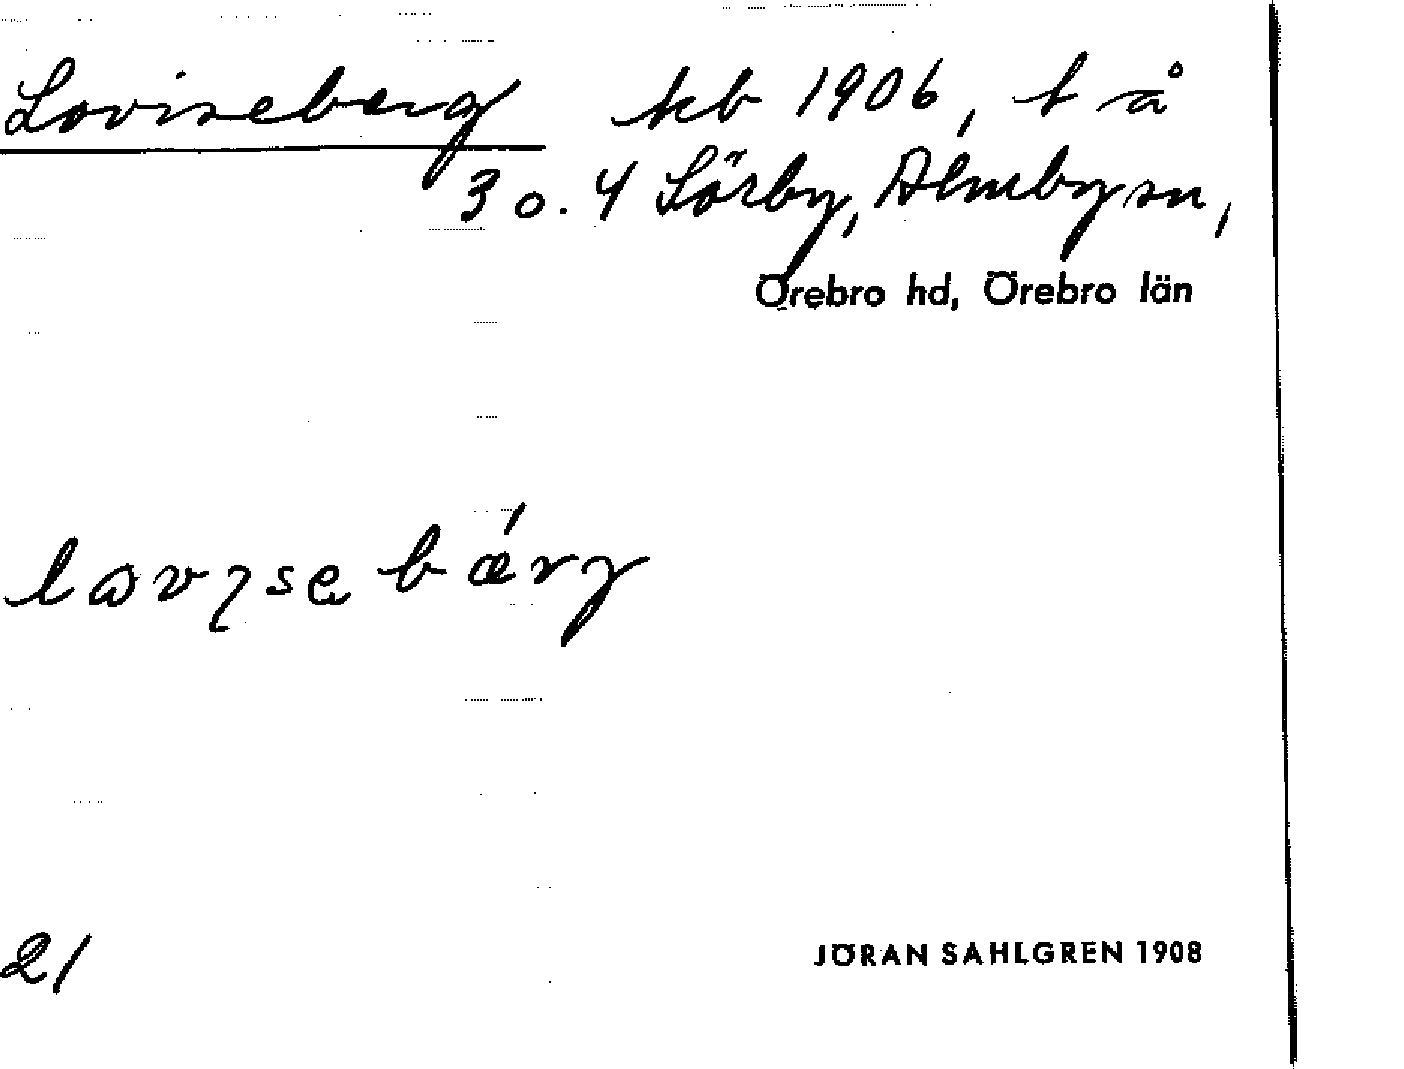 Loviseberg kb 1906, t å
30.4 Sörby, Almby sn,
Örebro hd, Örebro län
21
JÖRAN SAHLGREN 1908